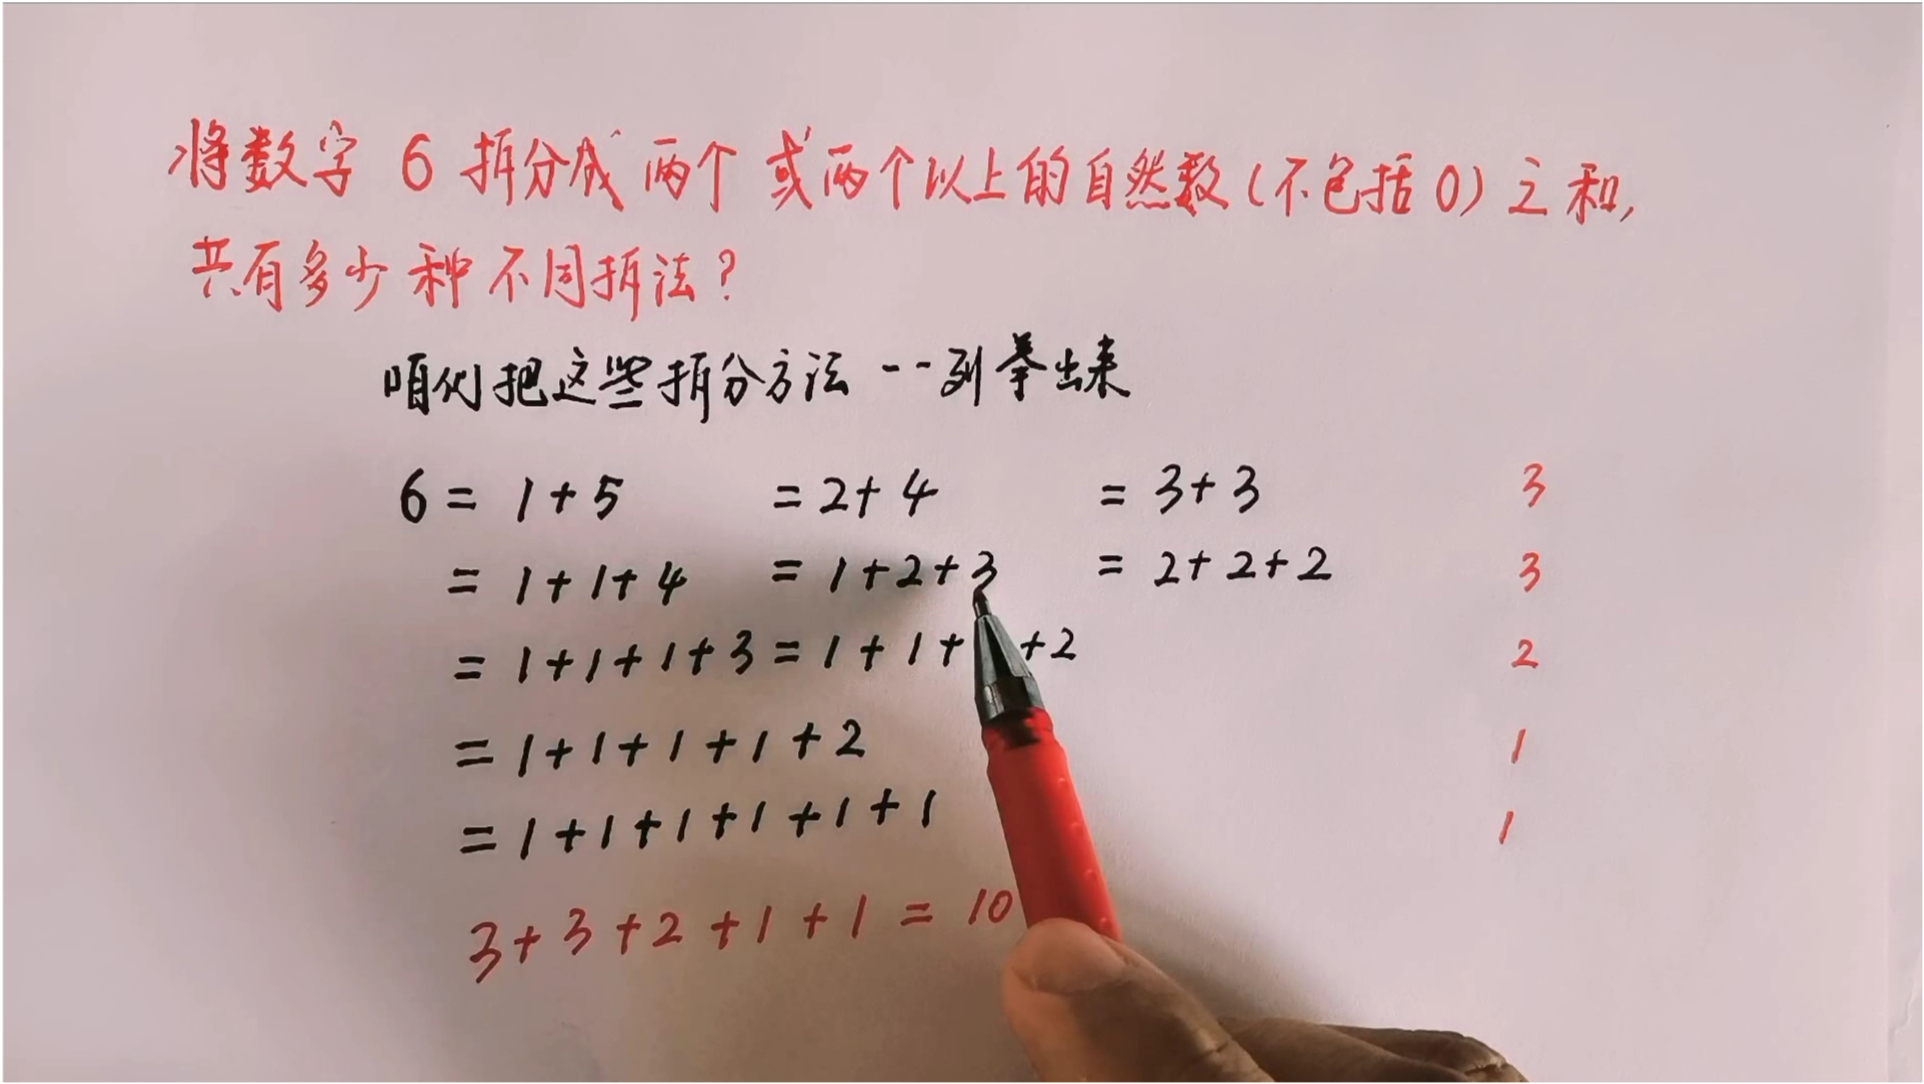 将数字 6 拆分成两个或两个以上的自然数(不包括0)之和,
共有多少种不同拆法?
咱们把这些拆分方法一一列举出来
6 = 1+5 = 2+4 = 3+3 3
= 1+1+4 = 1+2+3 = 2+2+2 3
= 1+1+1+3 = 1+1+ +2 2
= 1+1+1+1+2 1
= 1+1+1+1+1+1 1
3+3+2+1+1 = 10